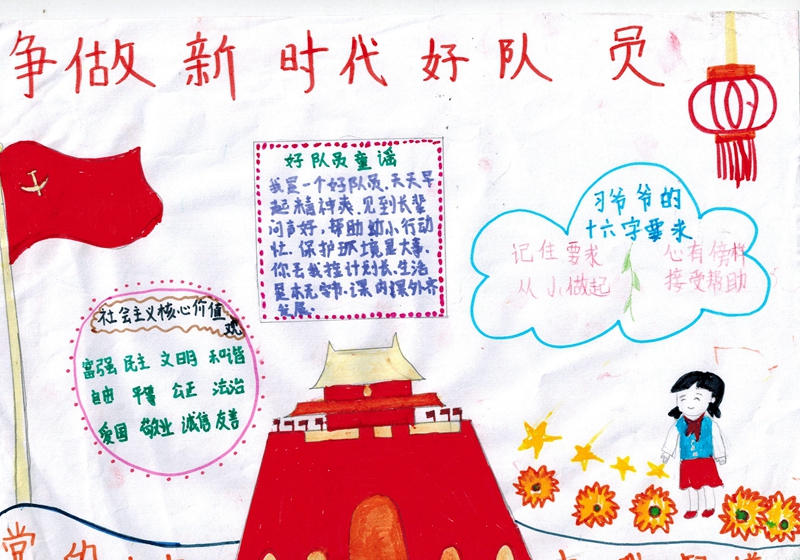 争做新时代好队员
好队员童谣
我是一个好队员,天天早
起精神爽,见到长辈
问声好,帮助幼小行动
忙.保护环境是大事.
你去我按计划长.生活
是本无字书.课内课外齐
发展.
习爷爷的
十六字要求
记住要求 心有榜样
从小做起 接受帮助
社会主义核心价值观
富强 民主 文明 和谐
自由 平等 公正 法治
爱国 敬业 诚信 友善